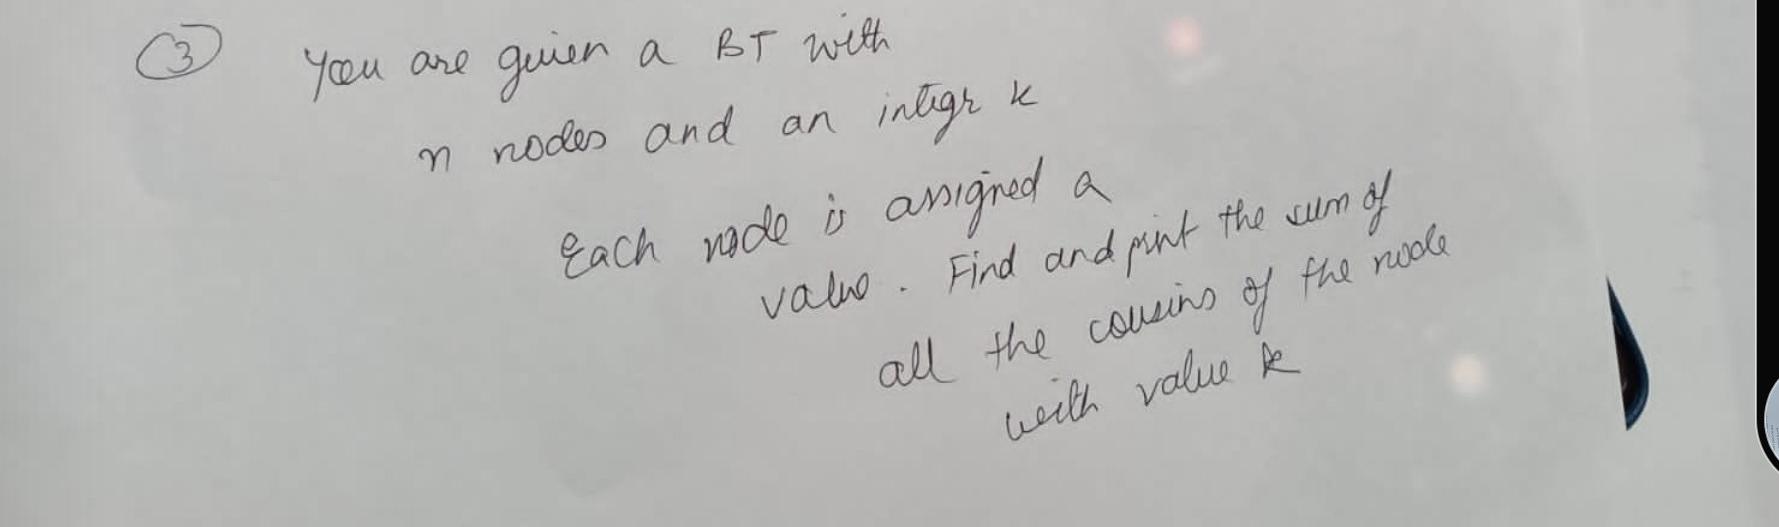 ③ You are given a BT with
n nodes and an integr k
Each node is assigned a
value. Find and print the sum of
all the cousins of the node
with value k